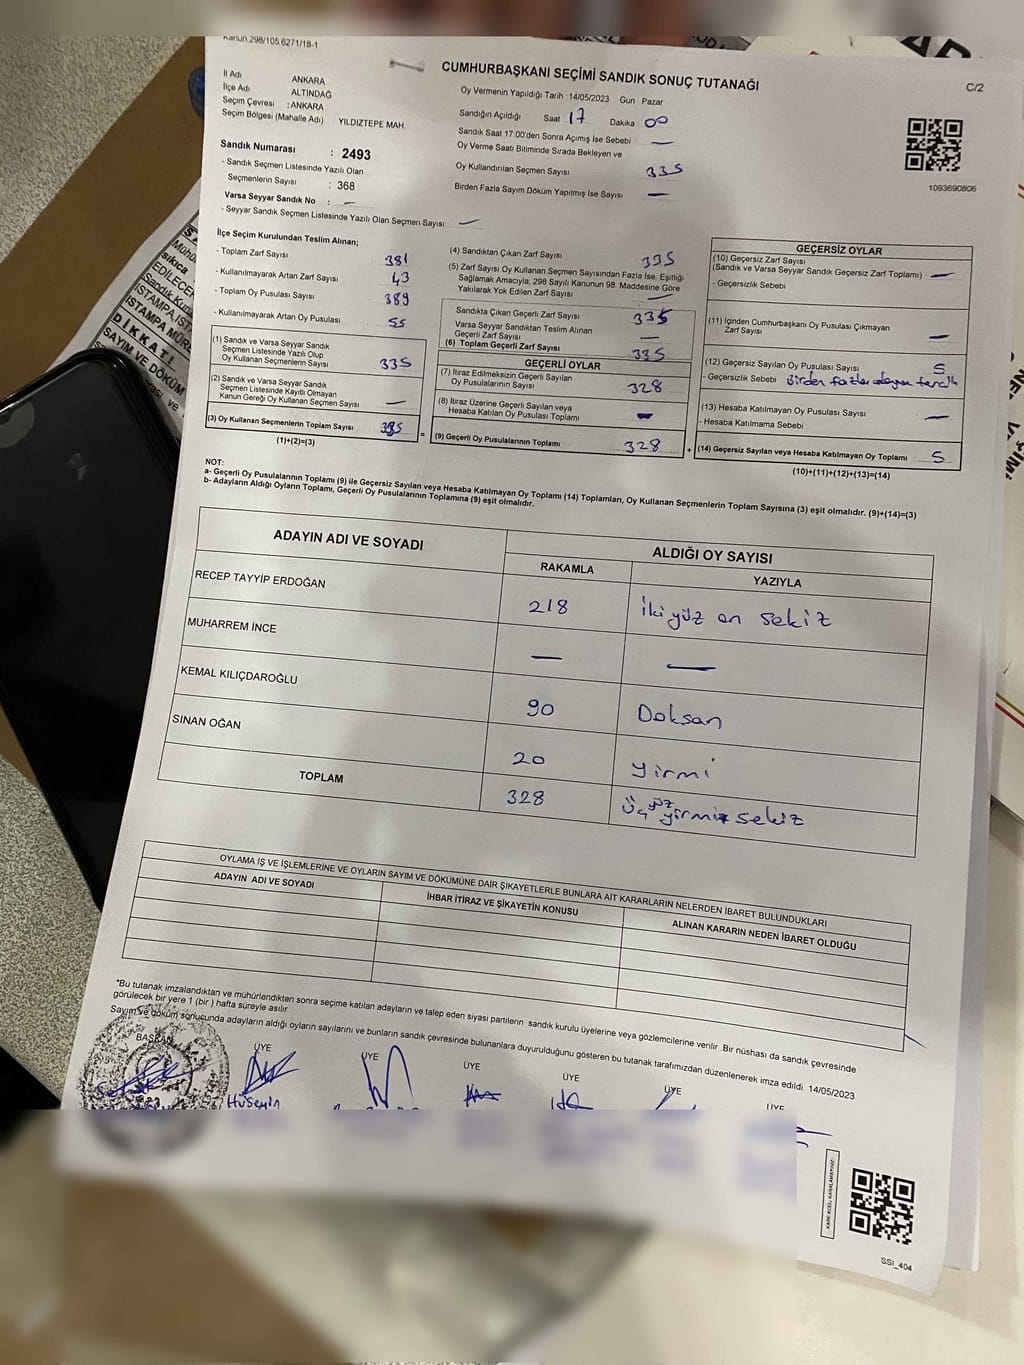 Kanun 298/105 6271/18-1
CUMHURBAŞKANI SEÇİMİ SANDIK SONUÇ TUTANAĞI
C/2
İl Adı ANKARA
İlçe Adı ALTINDAĞ
Seçim Çevresi : ANKARA
Seçim Bölgesi (Mahalle Adı) YILDIZTEPE MAH.
Oy Vermenin Yapıldığı Tarih : 14/05/2023 Gün Pazar
Sandığın Açıldığı Saat 17 Dakika 00
Sandık Saat 17:00'den Sonra Açılmış İse Sebebi —
Oy Verme Saati Bitiminde Sırada Bekleyen ve
Oy Kullandırılan Seçmen Sayısı 335
Birden Fazla Sayım Döküm Yapılmış İse Sayısı —
1093690806
Sandık Numarası : 2493
- Sandık Seçmen Listesinde Yazılı Olan
Seçmenlerin Sayısı : 368
Varsa Seyyar Sandık No : —
- Seyyar Sandık Seçmen Listesinde Yazılı Olan Seçmen Sayısı: —
İlçe Seçim Kurulundan Teslim Alınan;
- Toplam Zarf Sayısı 381
- Kullanılmayarak Artan Zarf Sayısı 43
- Toplam Oy Pusulası Sayısı 389
- Kullanılmayarak Artan Oy Pusulası 55
(1) Sandık ve Varsa Seyyar Sandık
Seçmen Listesinde Yazılı Olup
Oy Kullanan Seçmenlerin Sayısı 335
(2) Sandık ve Varsa Seyyar Sandık
Seçmen Listesinde Kayıtlı Olmayan
Kanun Gereği Oy Kullanan Seçmen Sayısı —
(3) Oy Kullanan Seçmenlerin Toplam Sayısı 335
(1)+(2)=(3)
(4) Sandıktan Çıkan Zarf Sayısı 335
(5) Zarf Sayısı Oy Kullanan Seçmen Sayısından Fazla İse, Eşitliği
Sağlamak Amacıyla, 298 Sayılı Kanunun 98. Maddesine Göre
Yakılarak Yok Edilen Zarf Sayısı —
Sandıkta Çıkan Geçerli Zarf Sayısı 335
Varsa Seyyar Sandıktan Teslim Alınan
Geçerli Zarf Sayısı —
(6) Toplam Geçerli Zarf Sayısı 335
GEÇERLİ OYLAR
(7) İtiraz Edilmeksizin Geçerli Sayılan
Oy Pusulalarının Sayısı 328
(8) İtiraz Üzerine Geçerli Sayılan veya
Hesaba Katılan Oy Pusulası Toplamı —
(9) Geçerli Oy Pusulalarının Toplamı 328
GEÇERSİZ OYLAR
(10) Geçersiz Zarf Sayısı
(Sandık ve Varsa Seyyar Sandık Geçersiz Zarf Toplamı) —
- Geçersizlik Sebebi
(11) İçinden Cumhurbaşkanı Oy Pusulası Çıkmayan
Zarf Sayısı —
(12) Geçersiz Sayılan Oy Pusulası Sayısı 5
- Geçersizlik Sebebi Birden fazla
(13) Hesaba Katılmayan Oy Pusulası Sayısı —
- Hesaba Katılmama Sebebi
(14) Geçersiz Sayılan veya Hesaba Katılmayan Oy Toplamı 5
(10)+(11)+(12)+(13)=(14)
NOT:
a- Geçerli Oy Pusulalarının Toplamı (9) ile Geçersiz Sayılan veya Hesaba Katılmayan Oy Toplamı (14) Toplamları, Oy Kullanan Seçmenlerin Toplam Sayısına (3) eşit olmalıdır. (9)+(14)=(3)
b- Adayların Aldığı Oyların Toplamı, Geçerli Oy Pusulalarının Toplamına (9) eşit olmalıdır.
ADAYIN ADI VE SOYADI ALDIĞI OY SAYISI
RAKAMLA YAZIYLA
RECEP TAYYİP ERDOĞAN 218 iki yüz on sekiz
MUHARREM İNCE — —
KEMAL KILIÇDAROĞLU 90 Doksan
SİNAN OĞAN 20 yirmi
TOPLAM 328 Üç yüz yirmi sekiz
OYLAMA İŞ VE İŞLEMLERİNE VE OYLARIN SAYIM VE DÖKÜMÜNE DAİR ŞİKAYETLERLE BUNLARA AİT KARARLARIN NELERDEN İBARET BULUNDUKLARI
ADAYIN ADI VE SOYADI İHBAR İTİRAZ VE ŞİKAYETİN KONUSU ALINAN KARARIN NEDEN İBARET OLDUĞU
*Bu tutanak imzalandıktan ve mühürlendikten sonra seçime katılan adayların ve talep eden siyasi partilerin sandık kurulu üyelerine veya gözlemcilerine verilir. Bir nüshası da sandık çevresinde
görülecek bir yere 1 (bir) hafta süreyle asılır
Sayım ve döküm sonucunda adayların aldığı oyların sayılarını ve bunların sandık çevresinde bulunanlara duyurulduğunu gösteren bu tutanak tarafımızdan düzenlenerek imza edildi. 14/05/2023
BAŞKAN ÜYE ÜYE ÜYE ÜYE ÜYE ÜYE
Hüseyin
KARE KODU KARALAMAYINIZ
SSI_404
DİKKAT!
SAYIM VE DÖKÜM